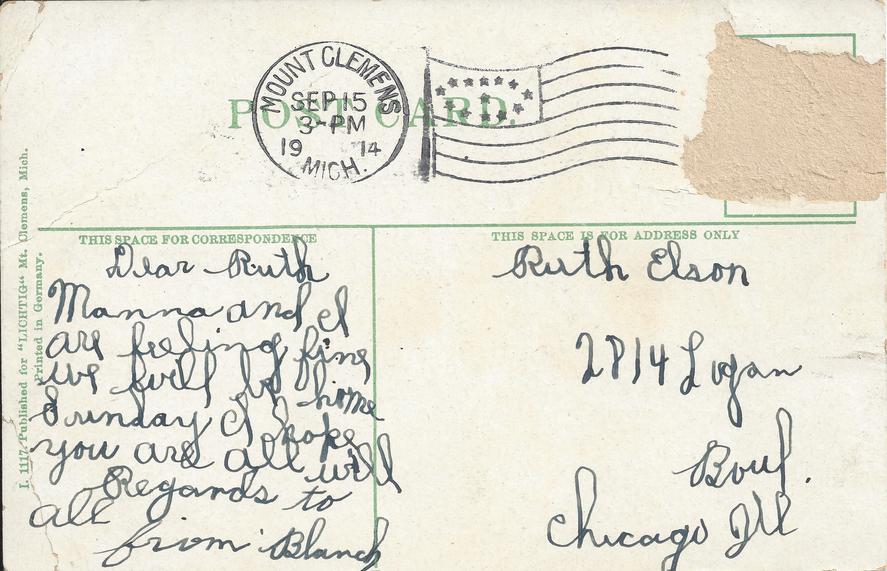 POST CARD.
MOUNT CLEMENS
SEP 15
3-PM
19 14
MICH.
THIS SPACE FOR CORRESPONDENCE
Dear Ruth
Mamma and I
are feeling fine
we will be home
Sunday I hope
you are all will
Regards to
all
from Blanch
THIS SPACE IS FOR ADDRESS ONLY
Ruth Elson
2814 Logan
Boul.
Chicago Ill
I. 1117. Published for "LICHTIG" Mt. Clemens, Mich.
Printed in Germany.